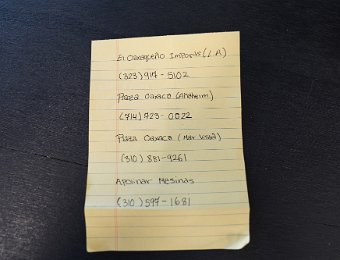 El Oaxaqueño Imports (L.A)
(323) 917-5102
Plaza Oaxaca (Anaheim)
(714) 723-0022
Plaza Oaxaca (Mar Vista)
(310) 881-9261
Apolinar Mesinas
(310) 597-1681